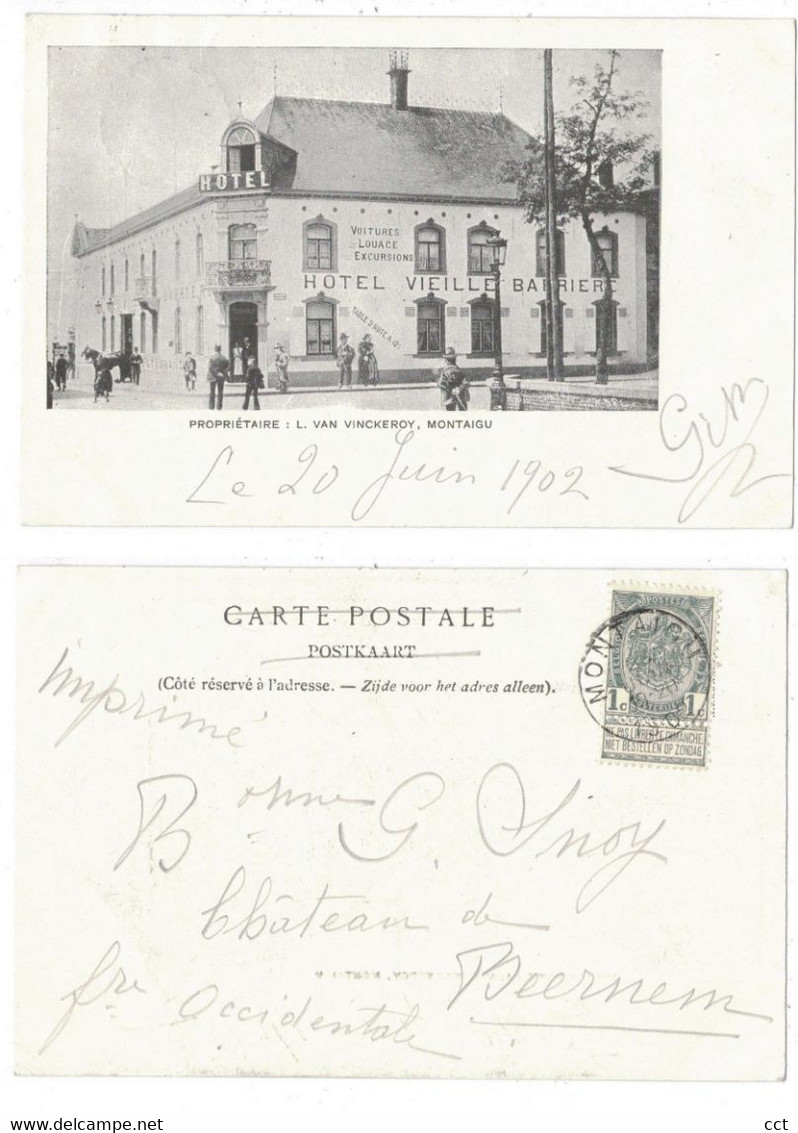 HOTEL
VOITURES
LOUAGE
EXCURSIONS
HOTEL VIEILLE BARRIERE
TABLE D'HOTE A 12 H
PROPRIÉTAIRE : L. VAN VINCKEROY, MONTAIGU
Le 20 Juin 1902
CARTE POSTALE
POSTKAART
(Côté réservé à l'adresse. — Zijde voor het adres alleen).
Imprimé
MONTAIGU
POSTES
1c 1c
NE PAS LIVRER LE DIMANCHE
NIET BESTELLEN OP ZONDAG
Bonne G. Snoy
Château de
Beernem
fre Occidentale
Delcampe.net
cct